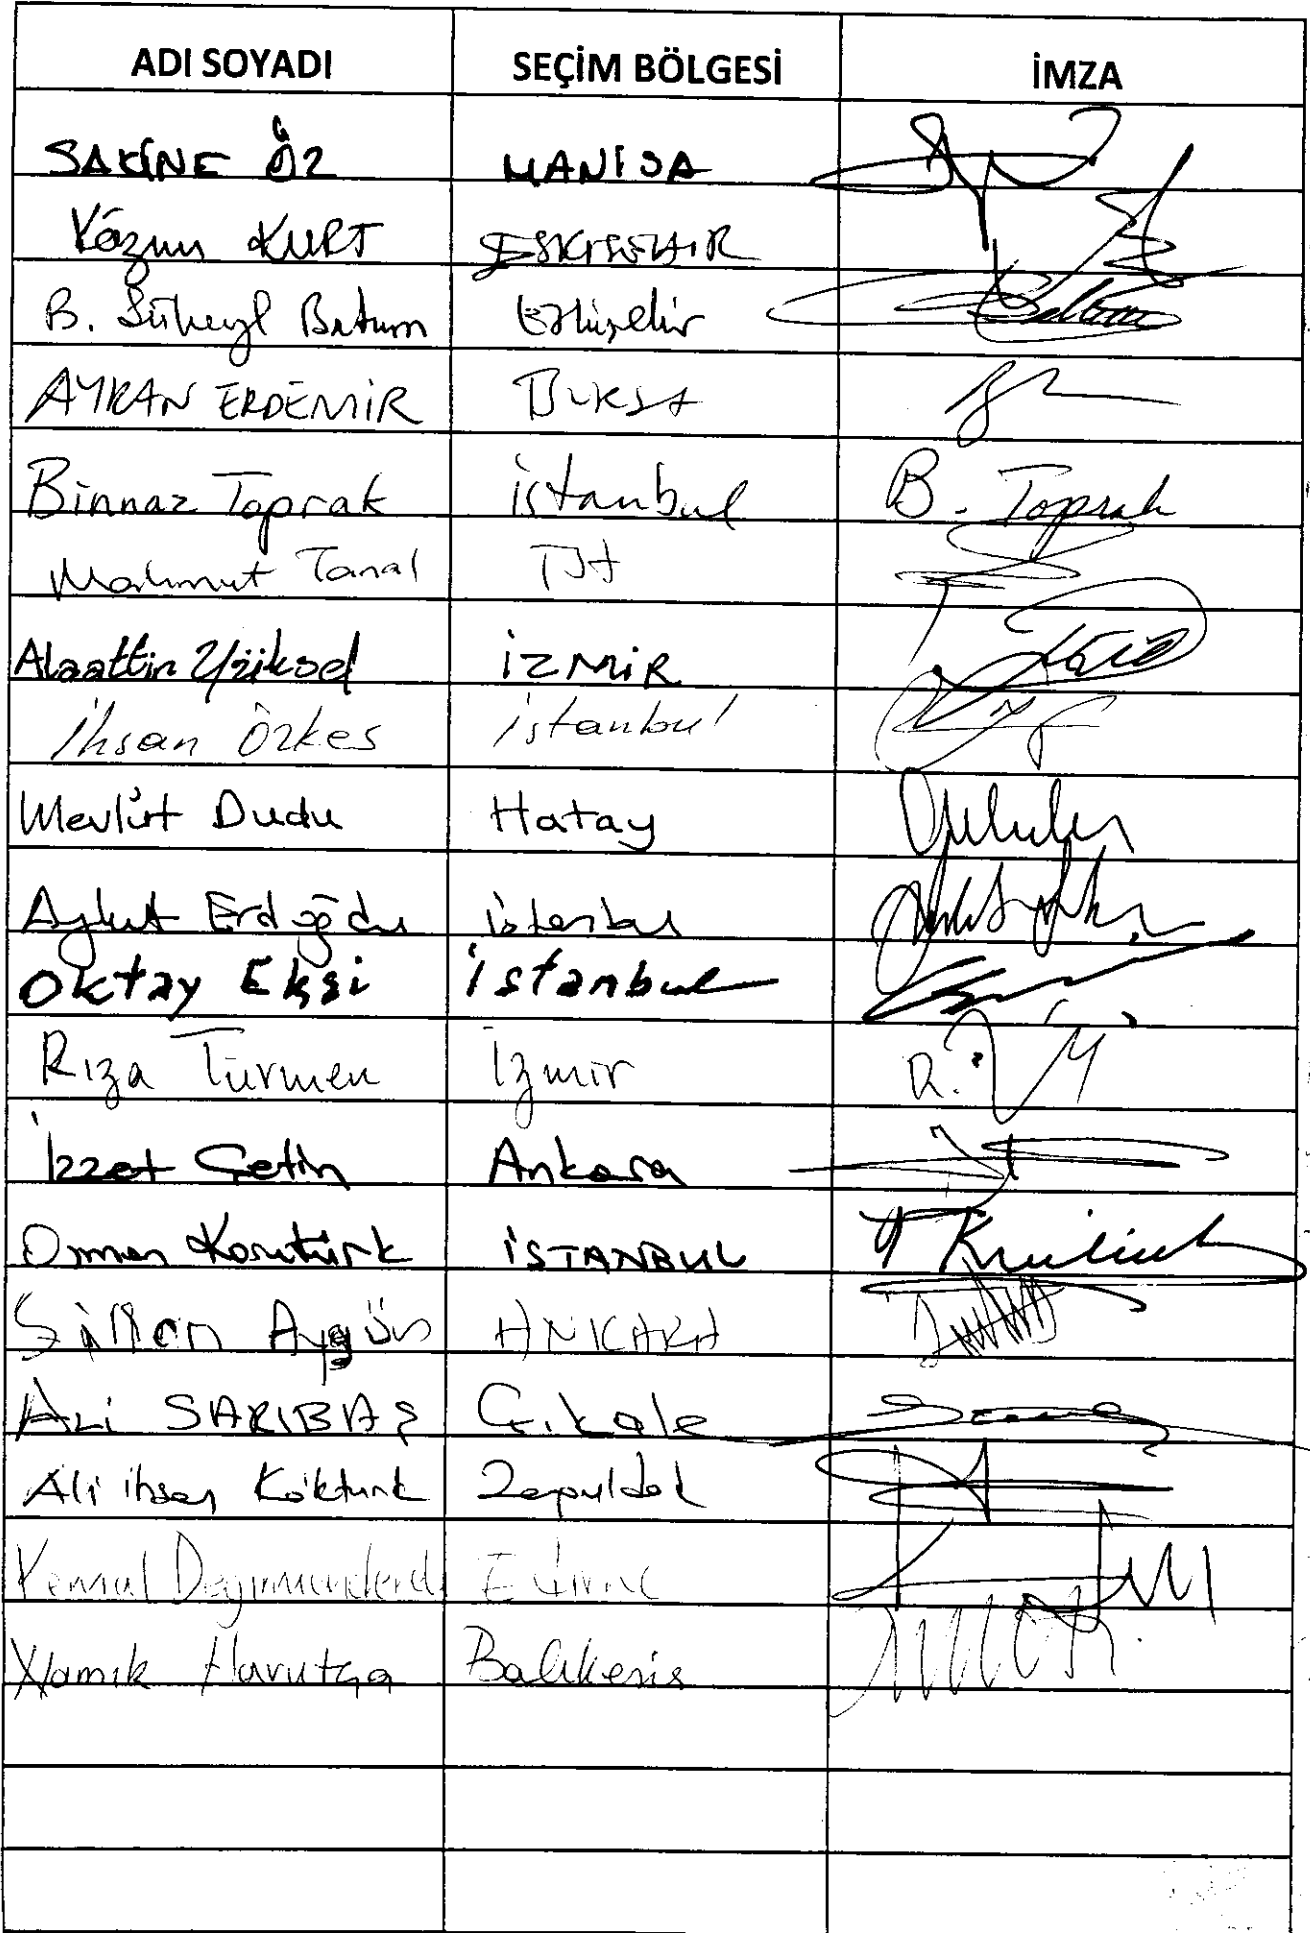 ADI SOYADI SEÇİM BÖLGESİ İMZA
SAKİNE ÖZ MANİSA
Kâzım KURT ESKİŞEHİR
B. Süheyl Batum Eskişehir
AYKAN ERDEMİR BURSA
Binnaz Toprak istanbul B. Toprak
Mahmut Tanal İST
Alaattin Yüksel İZMİR
İhsan Özkes istanbul
Mevlüt Dudu Hatay
Aykut Erdoğdu istanbul
Oktay Ekşi istanbul
Rıza Türmen İzmir
İzzet Çetin Ankara
Osman Korutürk İSTANBUL
Sinan Aygün ANKARA
ALİ SARIBAŞ Ç.kale
Ali ihsan Köktürk Zonguldak
Kemal Değirmendereli Edirne
Namık Havutça Balıkesir